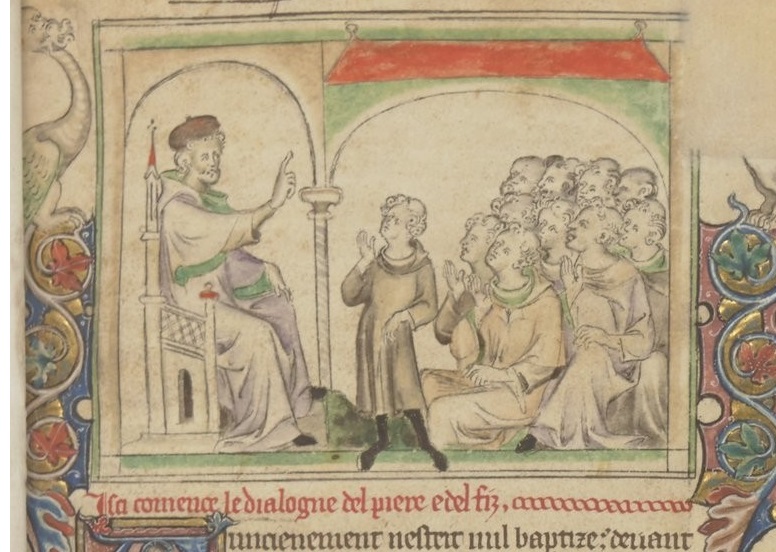 Isci comence le dialogne del piere e del fiz,
Auncienement nesteit nul baptize: devant